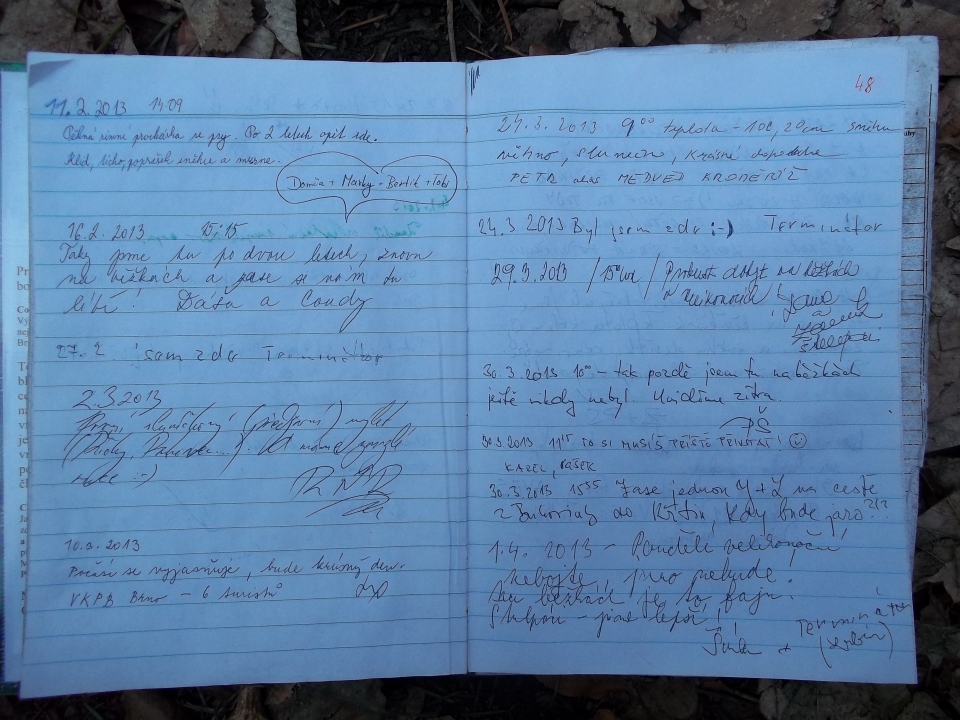 11.2.2013 14:09
Pěkná zimní procházka se psy. Po 2 letech opět zde.
Klid, ticho, poprašek sněhu a mrzne.
Domča + Marky + Bertík + Tobi
16.2. 2013 15:15
Taky jsme tu po dvou letech, znovu
na běžkách a zase se nám tu
líbí! Dáša a Coudy
27.2 sam zde Terminátor
2.3 2013
První sluníčkový (předjarní) výlet
10.3.2013
Počasí se vyjasňuje, bude krásný den.
VKPB Brno – 6 turistů
48
24.3. 2013 9⁰⁰ teplota -10C, 20cm sněhu
větrno, slunečno, krásné dopoledne
PETR alias MEDVĚD KROMĚŘÍŽ
24.3 2013 Byl jsem zde :-) Terminátor
29.3.2013 / 15 / na běžkách
o Velikonocích! Jana
a
Zdenek
30.3.2013 10⁰⁰ – tak pozdě jsem tu na běžkách
ještě nikdy nebyl. Uvidíme zítra.
PŠ
30.3 2013 11¹⁵ TO SI MUSÍŠ PŘÍŠTĚ PŘIVSTAT! ☺
KAREL, VAŠEK
30.3.2013 15³⁵ Zase jednou Y+Z na cestě
z Bukovinky do Křtin, kdy bude jaro???
1.4. 2013 – Pondělí velikonoční
Nebojte, jaro nebude.
Na běžkách je to fajn.
S tulpou – lepší!
Šárka + Terminátor